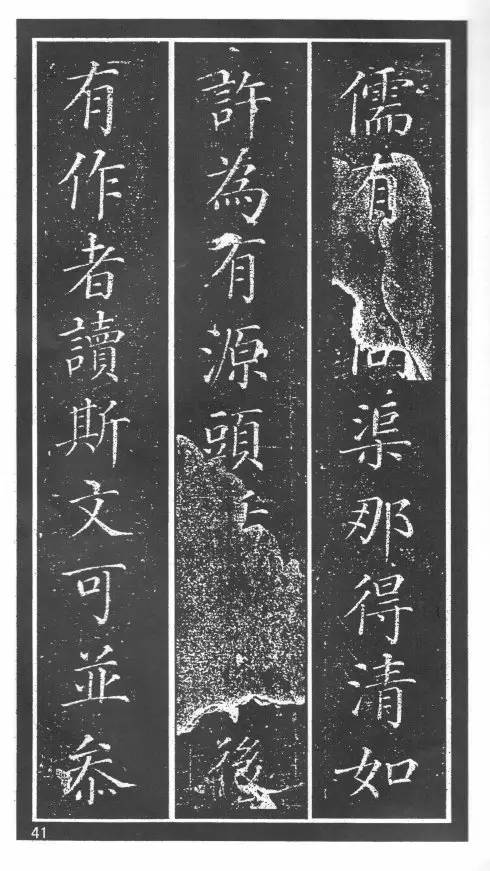 儒有問渠那得清如
許為有源頭後
有作者讀斯文可並叅
41